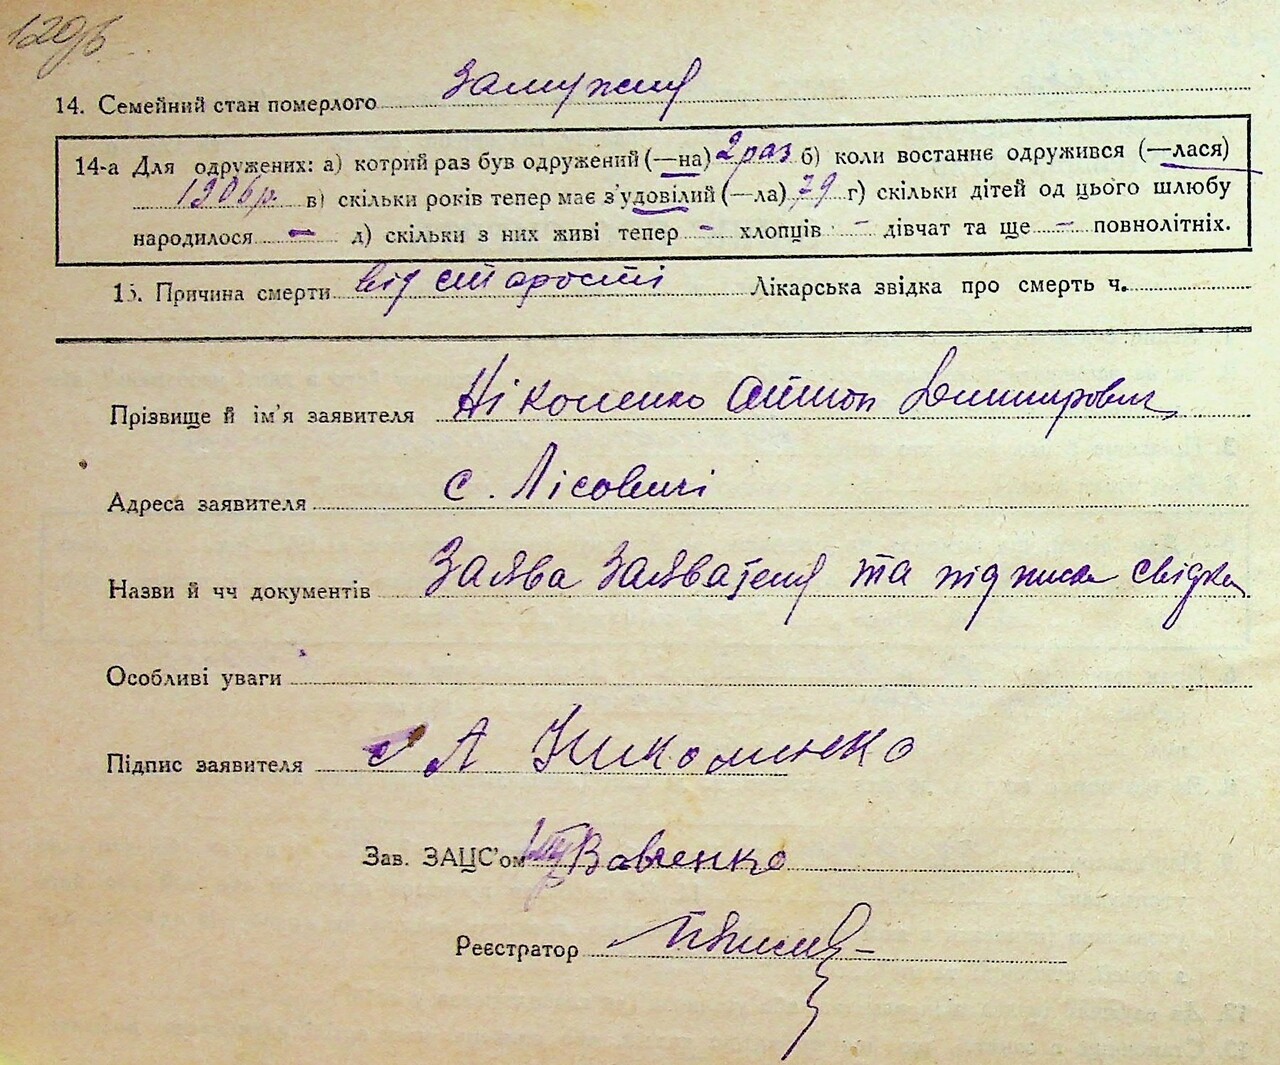 14. Семейний стан померлого Замужня
14-а Для одружених: а) котрий раз був одружений (—на) 2 раз б) коли востаннє одружився (—лася)
1906 р. в) скільки років тепер має з'удовілий (—ла) 79 г) скільки дітей од цього шлюбу
народилося — д) скільки з них живі тепер - хлопців - дівчат та ще - повнолітніх.
15. Причина смерти від старости Лікарська звідка про смерть ч.
Прізвище й ім'я заявителя Ніконенко Антон
Адреса заявителя с. Лісовичі
Назви й чч документів Заява Заявателя та підписи свідка
Особливі уваги
Підпис заявителя А Никоменко
Зав. ЗАЦС'ом Вовченко
Реєстратор